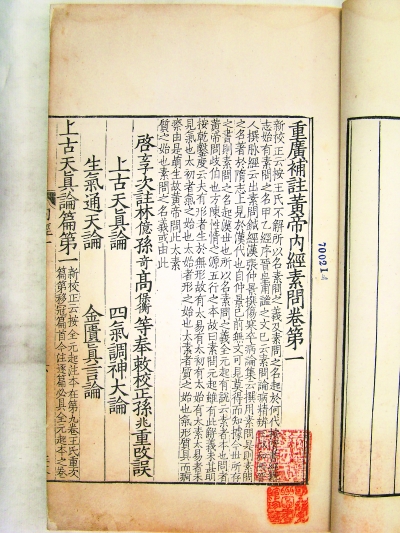 重廣補註黃帝内經素問卷第一
新校正云按王氏不解所以名素問之義及素問之名起於何代
志始有素問之名甲乙經序晉皇甫謐之文已云素問論病精辨
人撰脉經云出素問鍼經漢張仲景撰傷寒卒病論集云撰用素問是則素問
之名著於隋志上見於漢代也自仲景已前無文可見莫得而知據今世所存
之書則素問之名起漢世也所以名素問之義全元起有說云素者本也問者
黃帝問歧伯也方陳性情之源五行之本故曰素問元起雖有此解義未甚明
按乾鑿度云夫有形者生於無形故有太易有太初有太始有太素太易者未
見氣也太初者氣之始也太始者形之始也太素者質之始也氣形質具而痾
瘵由是萌生故黃帝問此太素
質之始也素問之名義或由此
啓玄子次註林億孫奇高保衡等奉敕校正孫兆重改誤
上古天真論
四氣調神大論
生氣通天論
金匱真言論
上古天真論篇第一
新校正云按全元起注本在第九卷王氏重次
篇第移冠篇首今注逐篇必具全元起本之卷
700214